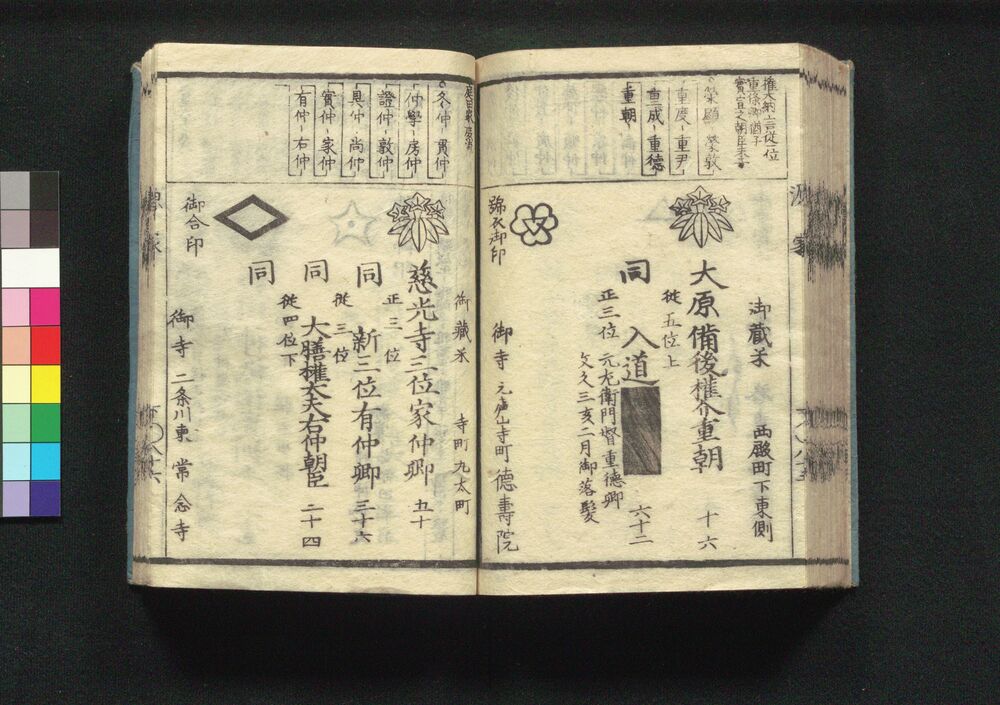 權大納言從一位
重條卿猶子
榮顯
榮敦
重慶
重尹
重成
重德
重朝
源家
御藏米
西殿町下東側
大原備後權介重朝
十六
從五位上
同
入道
六十二
正三位
元左衛門督重德卿
文久三亥二月御落髮
錦衣御印
御寺
元廬山寺町
德壽院
冬仲
貫仲
仲學
房仲
證仲
敦仲
具仲
尚仲
實仲
家仲
有仲
右仲
御藏米
寺町
丸太町
慈光寺三位家仲卿
五十
正三位
同
新三位有仲卿
三十六
從三位
同
大膳權大夫右仲朝臣
二十四
從四位下
同
御合印
御寺
二条川東
常念寺